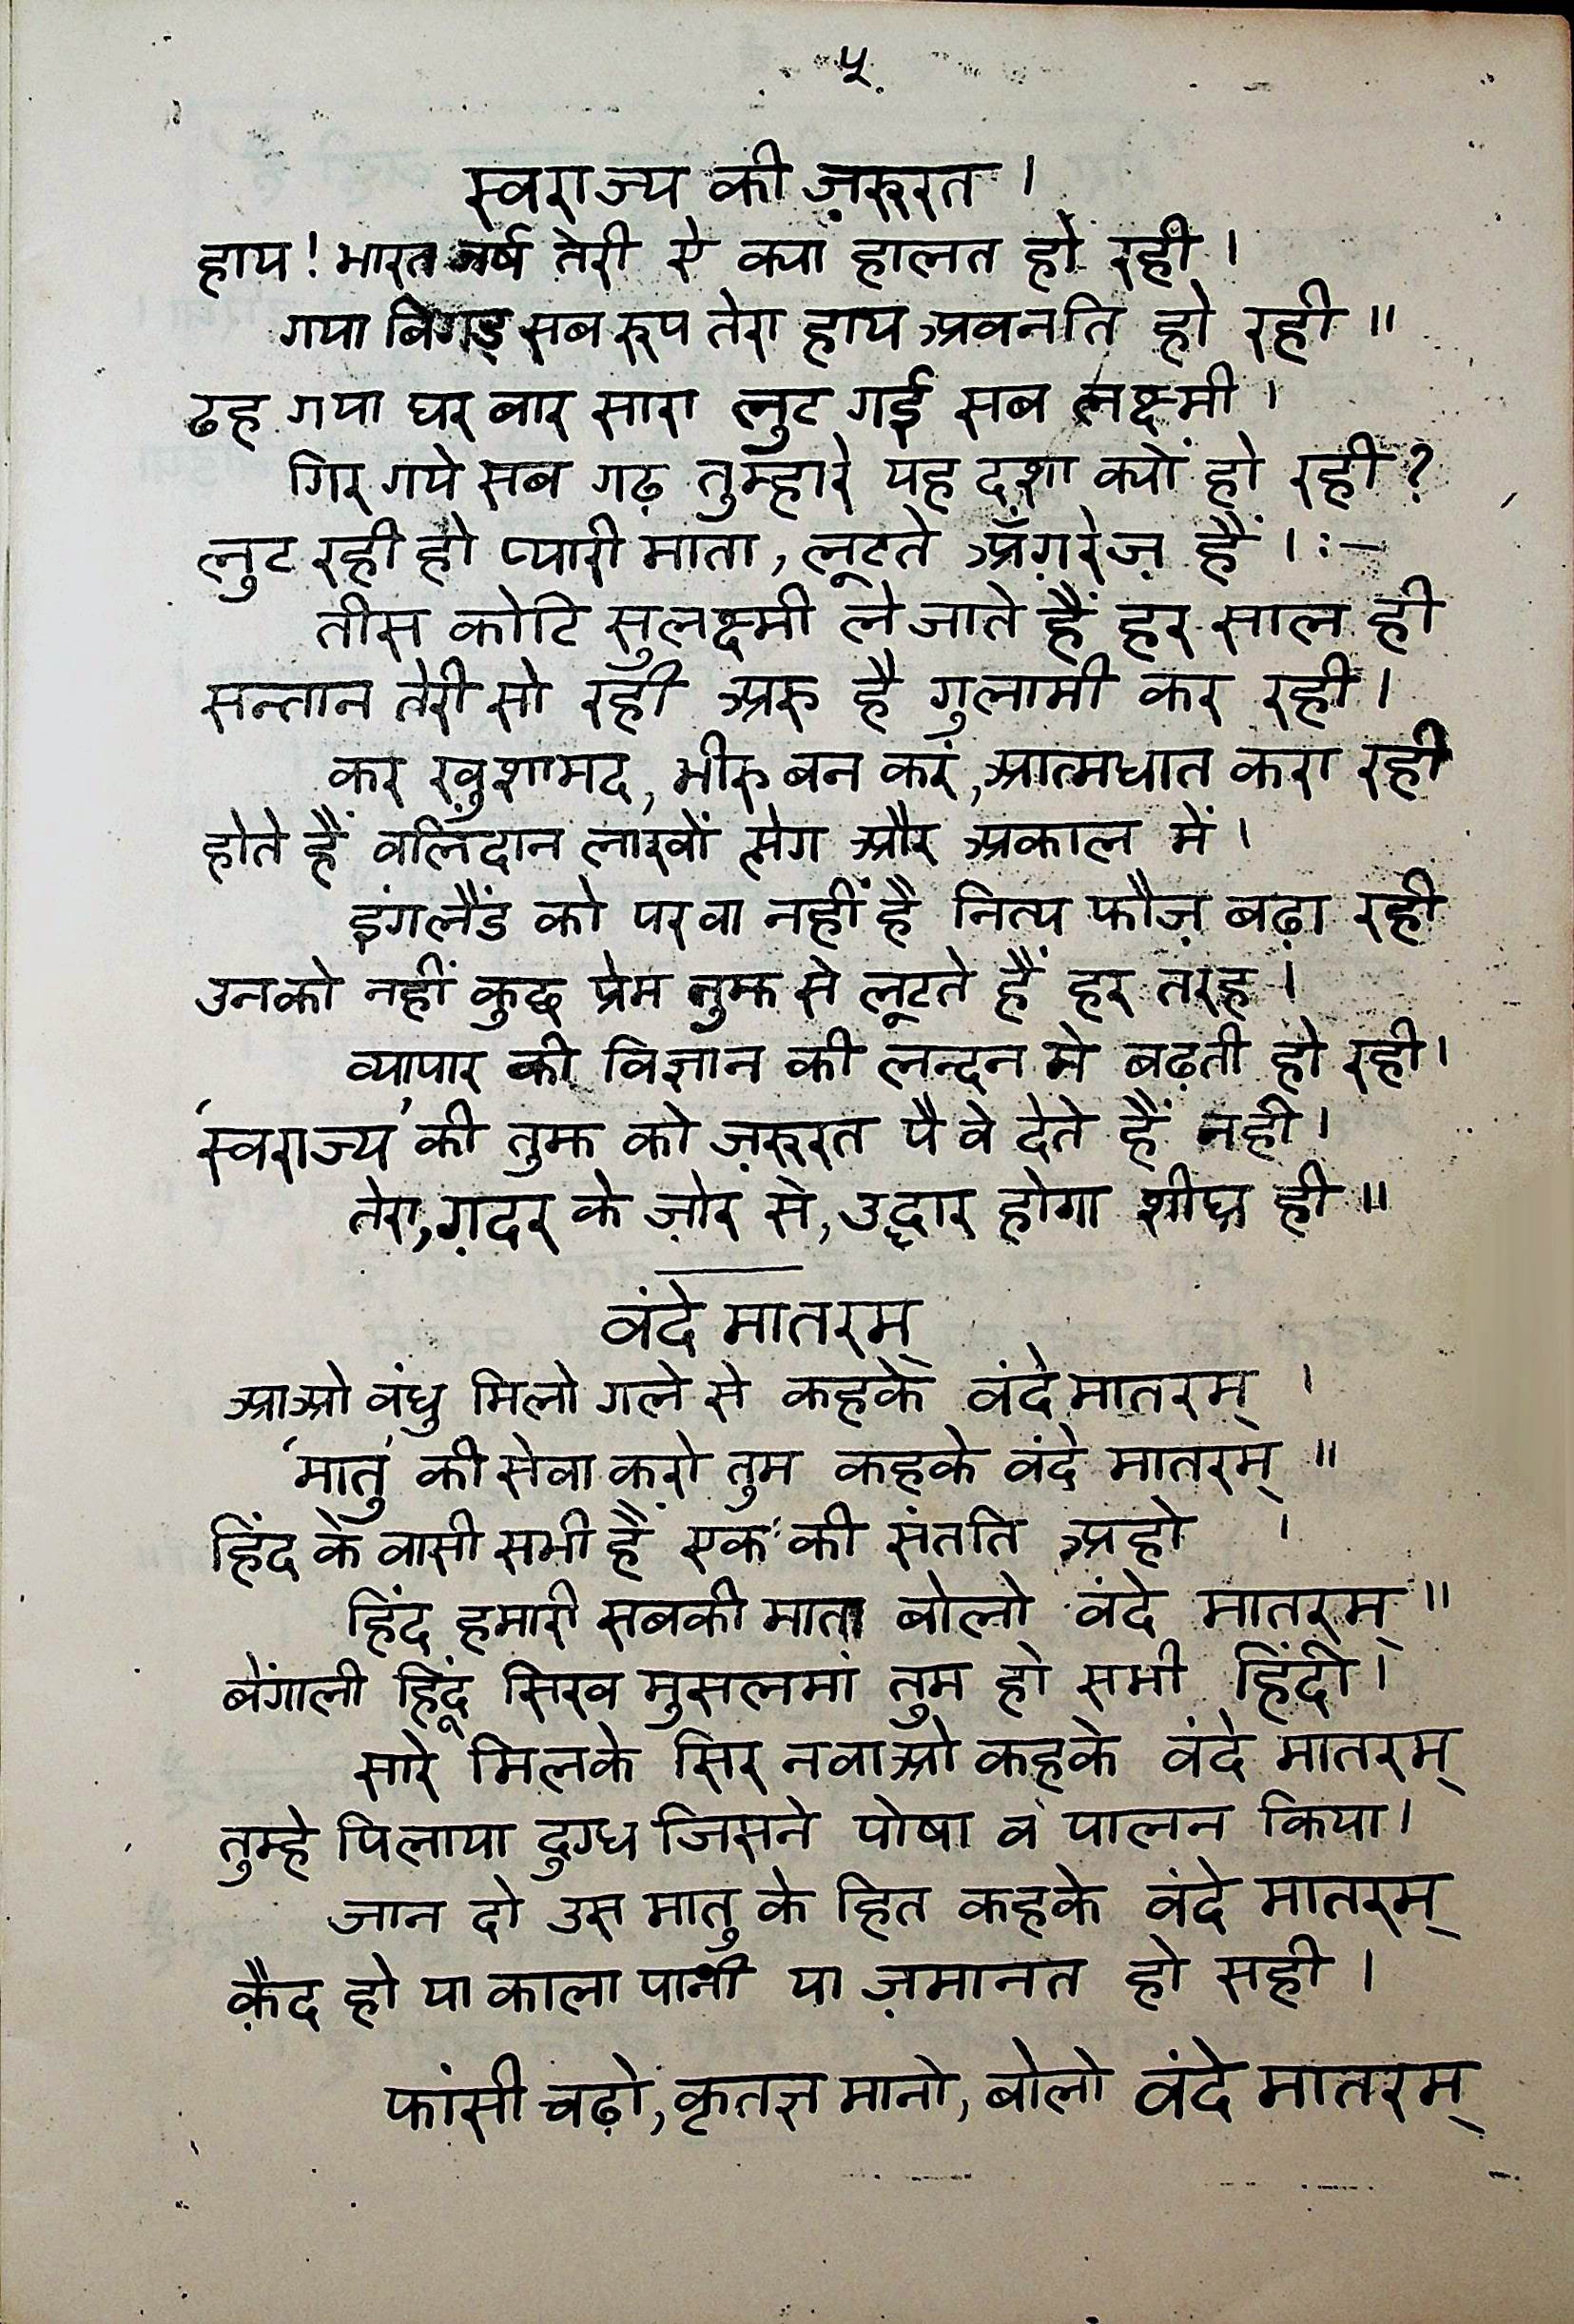 ५
स्वराज्य की ज़रुरत ।
हाय! भारत वर्ष तेरी ऐ क्या हालत हो रही ।
गया बिगड़ सब रुप तेरा हाय अवनति हो रही ॥
ढह गया घर बार सारा लुट गई सब लक्ष्मी ।
गिर गये सब गढ़ तुम्हारे यह दशा क्यों हो रही ?
लुट रही हो प्यारी माता, लूटते अँग़रेज़ हैं ।:—
तीस कोटि सुलक्ष्मी ले जाते हैं हर साल ही
सन्तान तेरी सो रही अरु है गुलामी कर रही ।
कर खुशामद, भीरु बन कर, आत्मघात करा रही
होते हैं वलिदान लाखों प्लेग और अकाल में ।
इंगलैंड को परवा नहीं है नित्य फौज़ बढ़ा रही
उनको नहीं कुछ प्रेम तुझ से लूटते हैं हर तरह ।
व्यापार की विज्ञान की लन्दन मे बढ़ती हो रही ।
‘स्वराज्य’ की तुझ को ज़रुरत पै वे देते हैं नही ।
तेरा, ग़दर के ज़ोर से, उद्धार होगा शीघ्र ही ॥
वंदे मातरम्
आओ वंधु मिलो गले से कहके वंदे मातरम् ।
‘मातु’ की सेवा करो तुम कहके वंदे मातरम् ॥
हिंद के वासी सभी हैं एक की संतति अहो ।
हिंद हमारी सबकी माता बोलो वंदे मातरम् ॥
बेंगाली हिंदू सिख मुसलमां तुम हो सभी हिंदी ।
सारे मिलके सिर नवाओ कहके वंदे मातरम्
तुम्हे पिलाया दुग्ध जिसने पोषा व पालन किया ।
जान दो उस मातु के हित कहके वंदे मातरम्
क़ैद हो या काला पानी या ज़मानत हो सही ।
फांसी चढ़ो, कृतज्ञ मानो, बोलो वंदे मातरम्